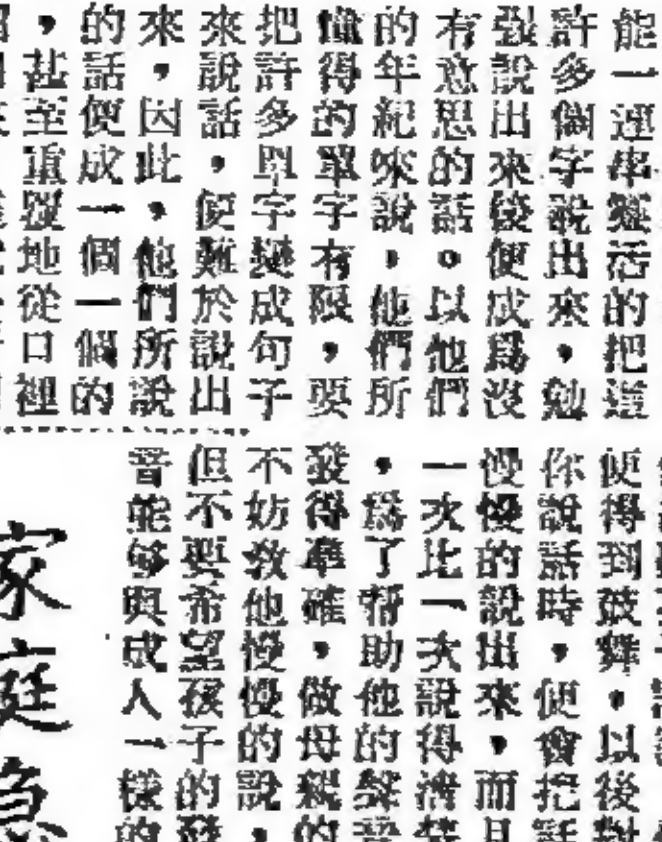 能一連串靈活的把這
許多個字說出來,勉
强說出來後便成爲沒
有意思的話。以他們
的年紀來說,他們所
懂得的單字有限,要
把許多單字變成句子
來說話,便難於說出
來,因此,他們所說
的話便成一個一個的
,甚至重覆地從口裡
便得到鼓舞,以後對
你說話時,便會把話
慢慢的說出來,而且
一次比一次說得清楚
,爲了幫助他的聲音
發得準確,做母親的
不妨教他慢慢的說,
但不要希望孩子的發
音能够與成人一樣的
家庭急